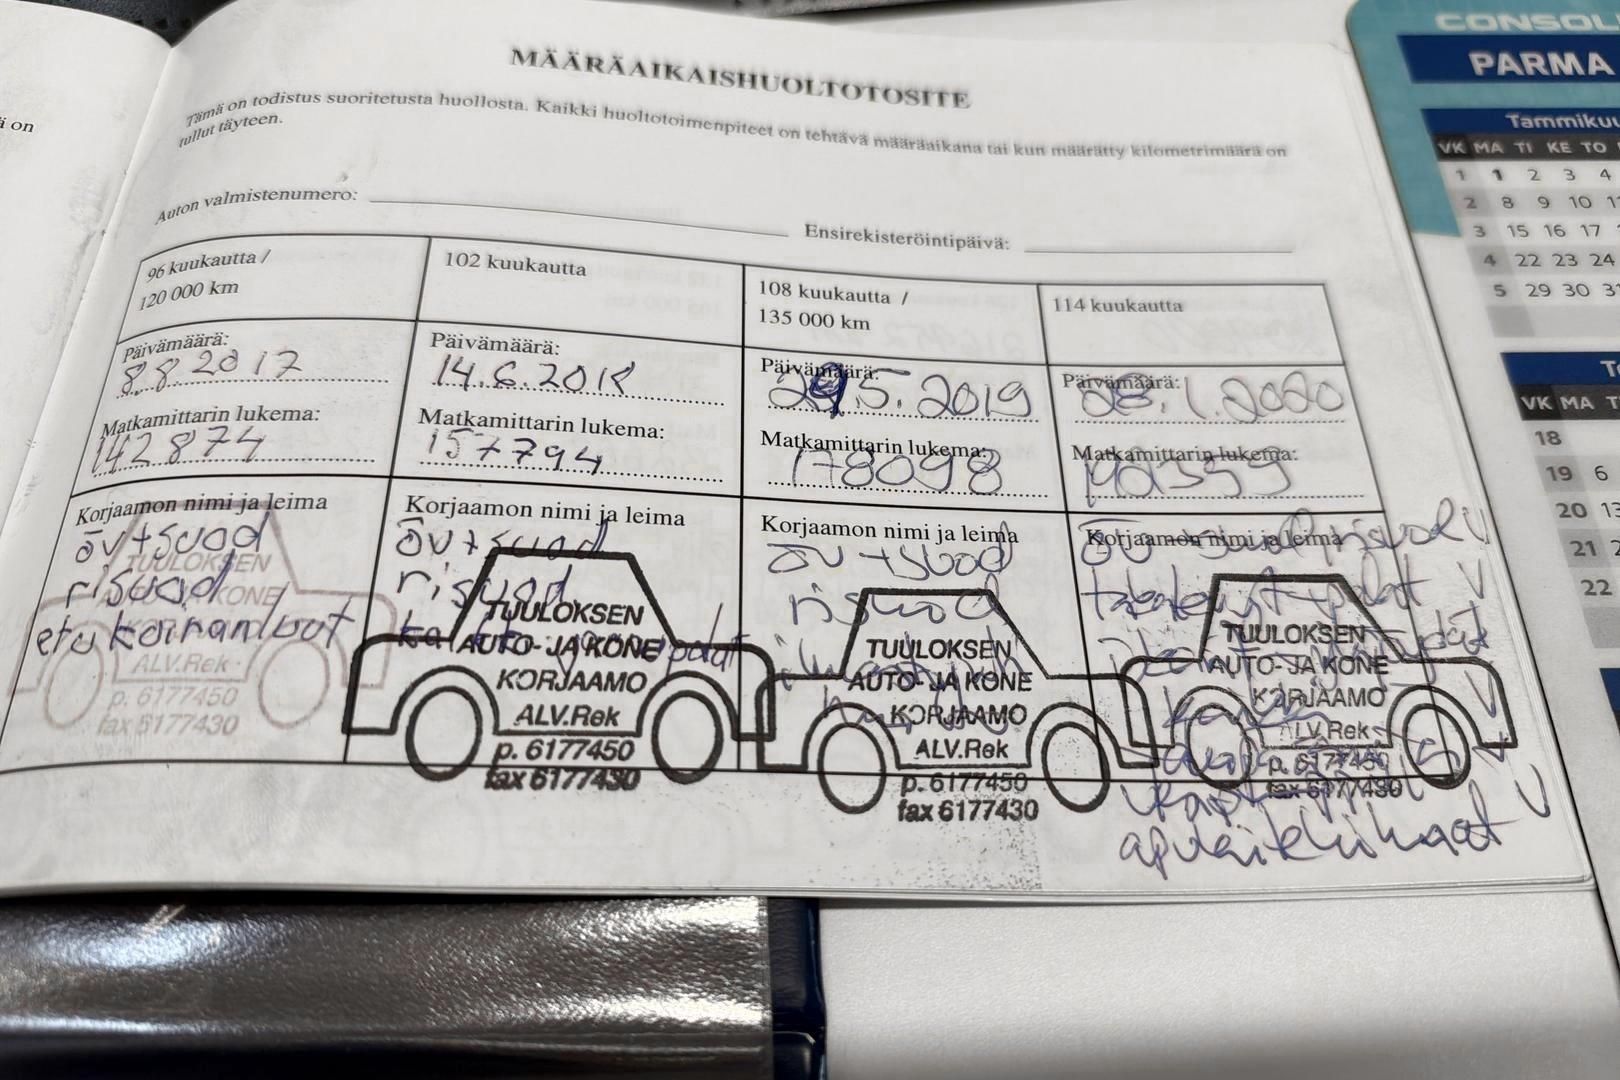 ä on
MÄÄRÄAIKAISHUOLTOTOSITE
Tämä on todistus suoritetusta huollosta. Kaikki huoltotoimenpiteet on tehtävä määräaikana tai kun määrätty kilometrimäärä on
tullut täyteen.
Auton valmistenumero:
Ensirekisteröintipäivä:
96 kuukautta /
120 000 km
Päivämäärä:
8.8.2017
Matkamittarin lukema:
142874
Korjaamon nimi ja leima
öv+suod
risuod
etu koiranluut
TUULOKSEN
KONE
ALV.Rek
p. 6177450
fax 6177430
102 kuukautta
Päivämäärä:
14.6.2018
Matkamittarin lukema:
157794
Korjaamon nimi ja leima
öv+suod
risuod
TUULOKSEN
AUTO- JA KONE
KORJAAMO
ALV.Rek
p. 6177450
fax 6177430
108 kuukautta /
135 000 km
Päivämäärä:
29.5.2019
Matkamittarin lukema:
178098
Korjaamon nimi ja leima
öv+suod
risuod
TUULOKSEN
AUTO- JA KONE
KORJAAMO
ALV.Rek
p. 6177450
fax 6177430
114 kuukautta
Päivämäärä:
28.1.2020
Matkamittarin lukema:
Korjaamon nimi ja leima
TUULOKSEN
AUTO- JA KONE
KORJAAMO
ALV.Rek
p. 6177450
fax 6177430
CONSOL
PARMA
Tammikuu
VK MA TI KE TO
1 1 2 3 4
2 8 9 10 11
3 15 16 17
4 22 23 24
5 29 30 31
VK MA
18
19 6
20 13
21
22